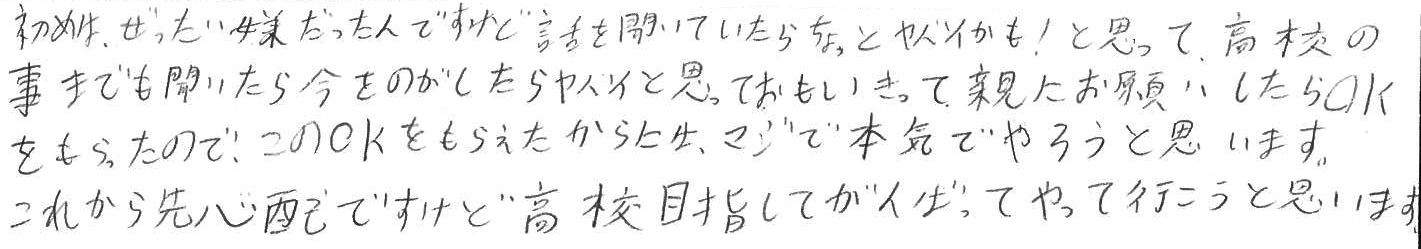 初めは、ぜったい嫌だったんですけど話を聞いていたらちょっとヤバイかも!と思って、高校の
事までも聞いたら今をのがしたらヤバイと思っておもいきって、親にお願いしたらOK
をもらったので、このOKをもらえたからには、マジで本気でやろうと思います。
これから先心配ですけど高校目指してがんばってやって行こうと思います